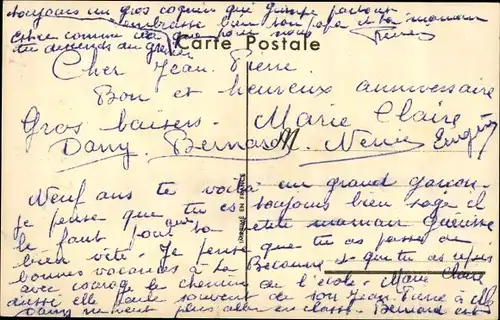 toujours un gros coquin qui grimpe partout
embrasse bien ton papa et ta maman
est-ce comme ça que pour nous
tu descends du grenier
Carte Postale
Cher Jean-Pierre
Bon et heureux anniversaire
Gros baisers. Marie Claire
Dany. Bernard. Nénie
Neuf ans te voilà un grand garçon.
je pense que tu es toujours bien sage il
le faut pour ta petite maman guérisse
bien vite. Je pense que tu as passé de
bonnes vacances à La et que tu as repris
avec courage le chemin de l'école. Marie Claire
aussi elle parle souvent de son Jean-Pierre à
Dany ne veut plus aller en classe. Bernard est